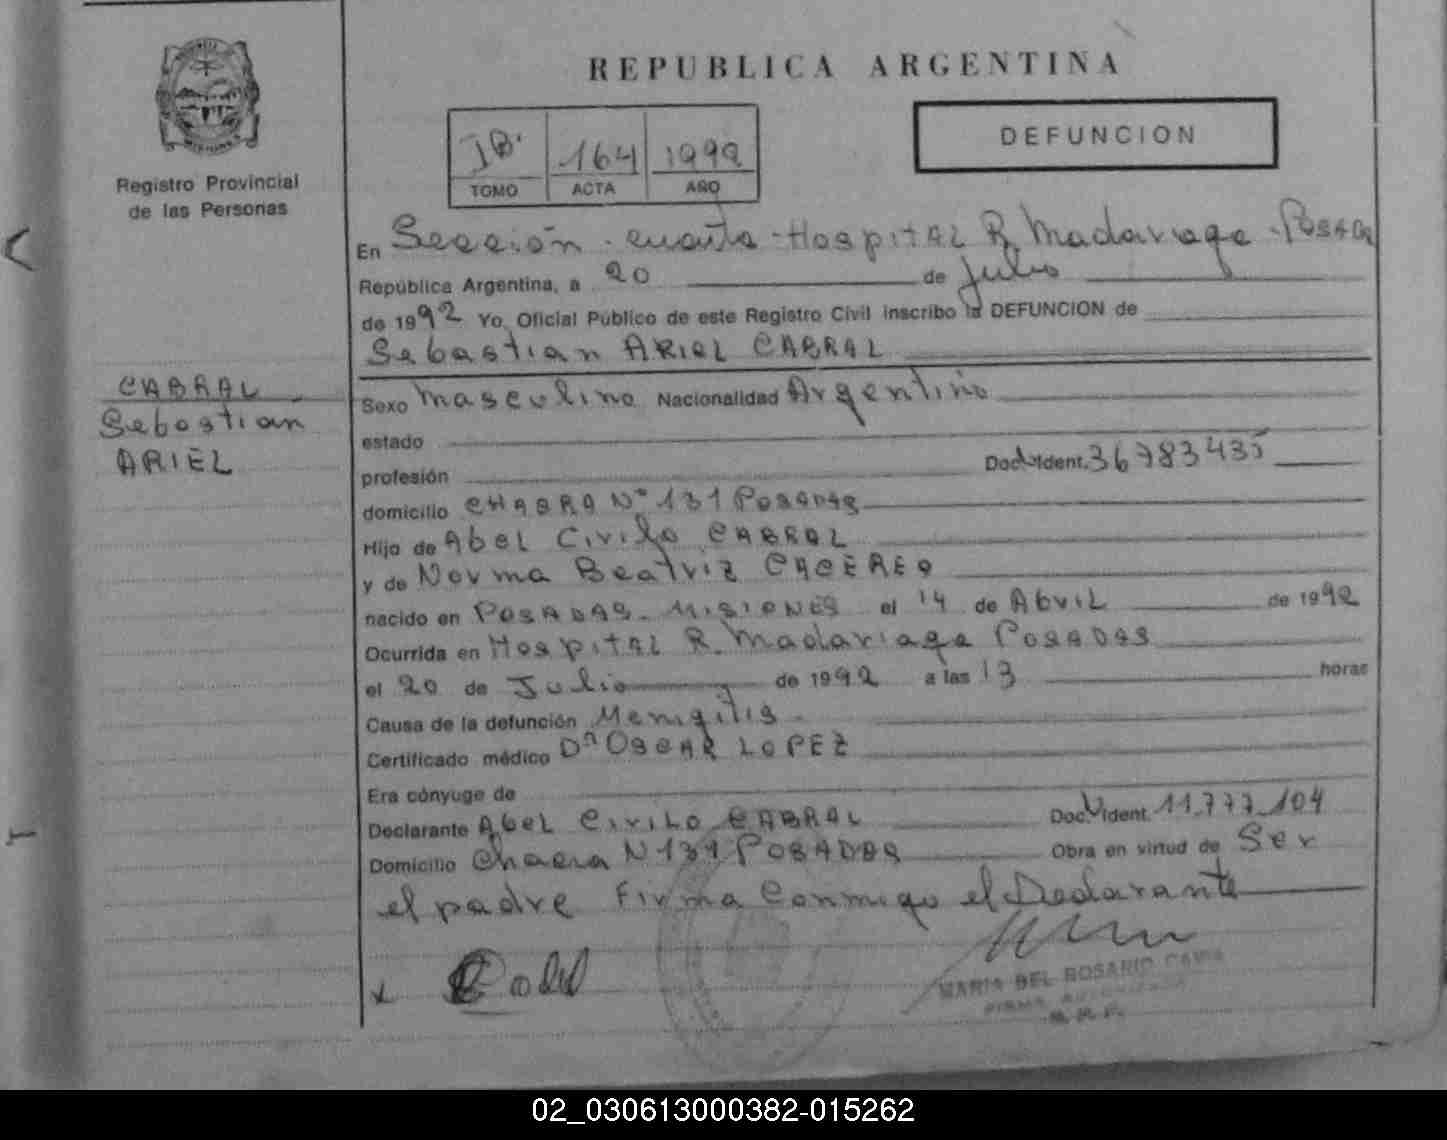 REPUBLICA ARGENTINA
DEFUNCION
164 1992
TOMO ACTA AÑO
Registro Provincial
de las Personas
En Sección cuarta - Hospital R. Madariaga - Posadas
República Argentina, a 20 de Julio
de 1992 Yo, Oficial Público de este Registro Civil inscribo la DEFUNCION de
Sebastian ARIEL CABRAL
CABRAL
Sebastian
ARIEL
Sexo Masculino Nacionalidad Argentino
estado
profesión Doc. Ident. 36783435
domicilio CHACRA Nº 131 POSADAS
Hijo de Abel Cirilo CABRAL
y de Norma Beatriz CACERES
nacido en POSADAS - MISIONES el 14 de AbriL de 1992
Ocurrida en HospitAL R. Madariaga POSADAS
el 20 de Julio de 1992 a las 13 horas
Causa de la defunción Menigitis
Certificado médico Dr OSCAR LOPEZ
Era cónyuge de
Declarante AbeL CiriLo CABRAL Doc. Ident. 11.777.104
Domicilio Chacra N 131 POSADAS Obra en virtud de Ser
el padre Firma Conmigo el Declarante
MARIA DEL ROSARIO
FIRMA AUTORIZADA
02_030613000382-015262